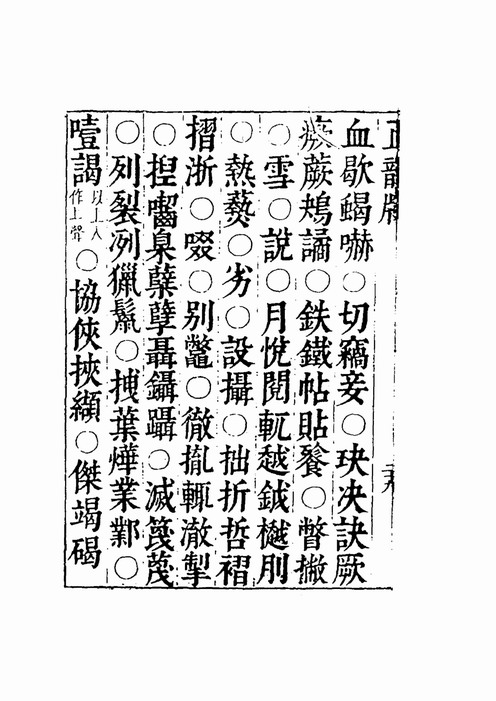 血歇蝎嚇○切竊妾○玦决訣厥
蕨鴂譎○鉄鐵帖貼餮○瞥撇
○雪○說○月悅閱軏越鉞樾刖
○熱爇○劣○設攝○拙折哲褶
摺浙○啜○别鼈○徹輒澈掣
○揑囓臬糵孽聶鑷躡○滅篾蔑
○列裂冽獵鬣○拽葉燁業鄴○
噎謁以上入作上聲○協俠挾纈○傑竭碣